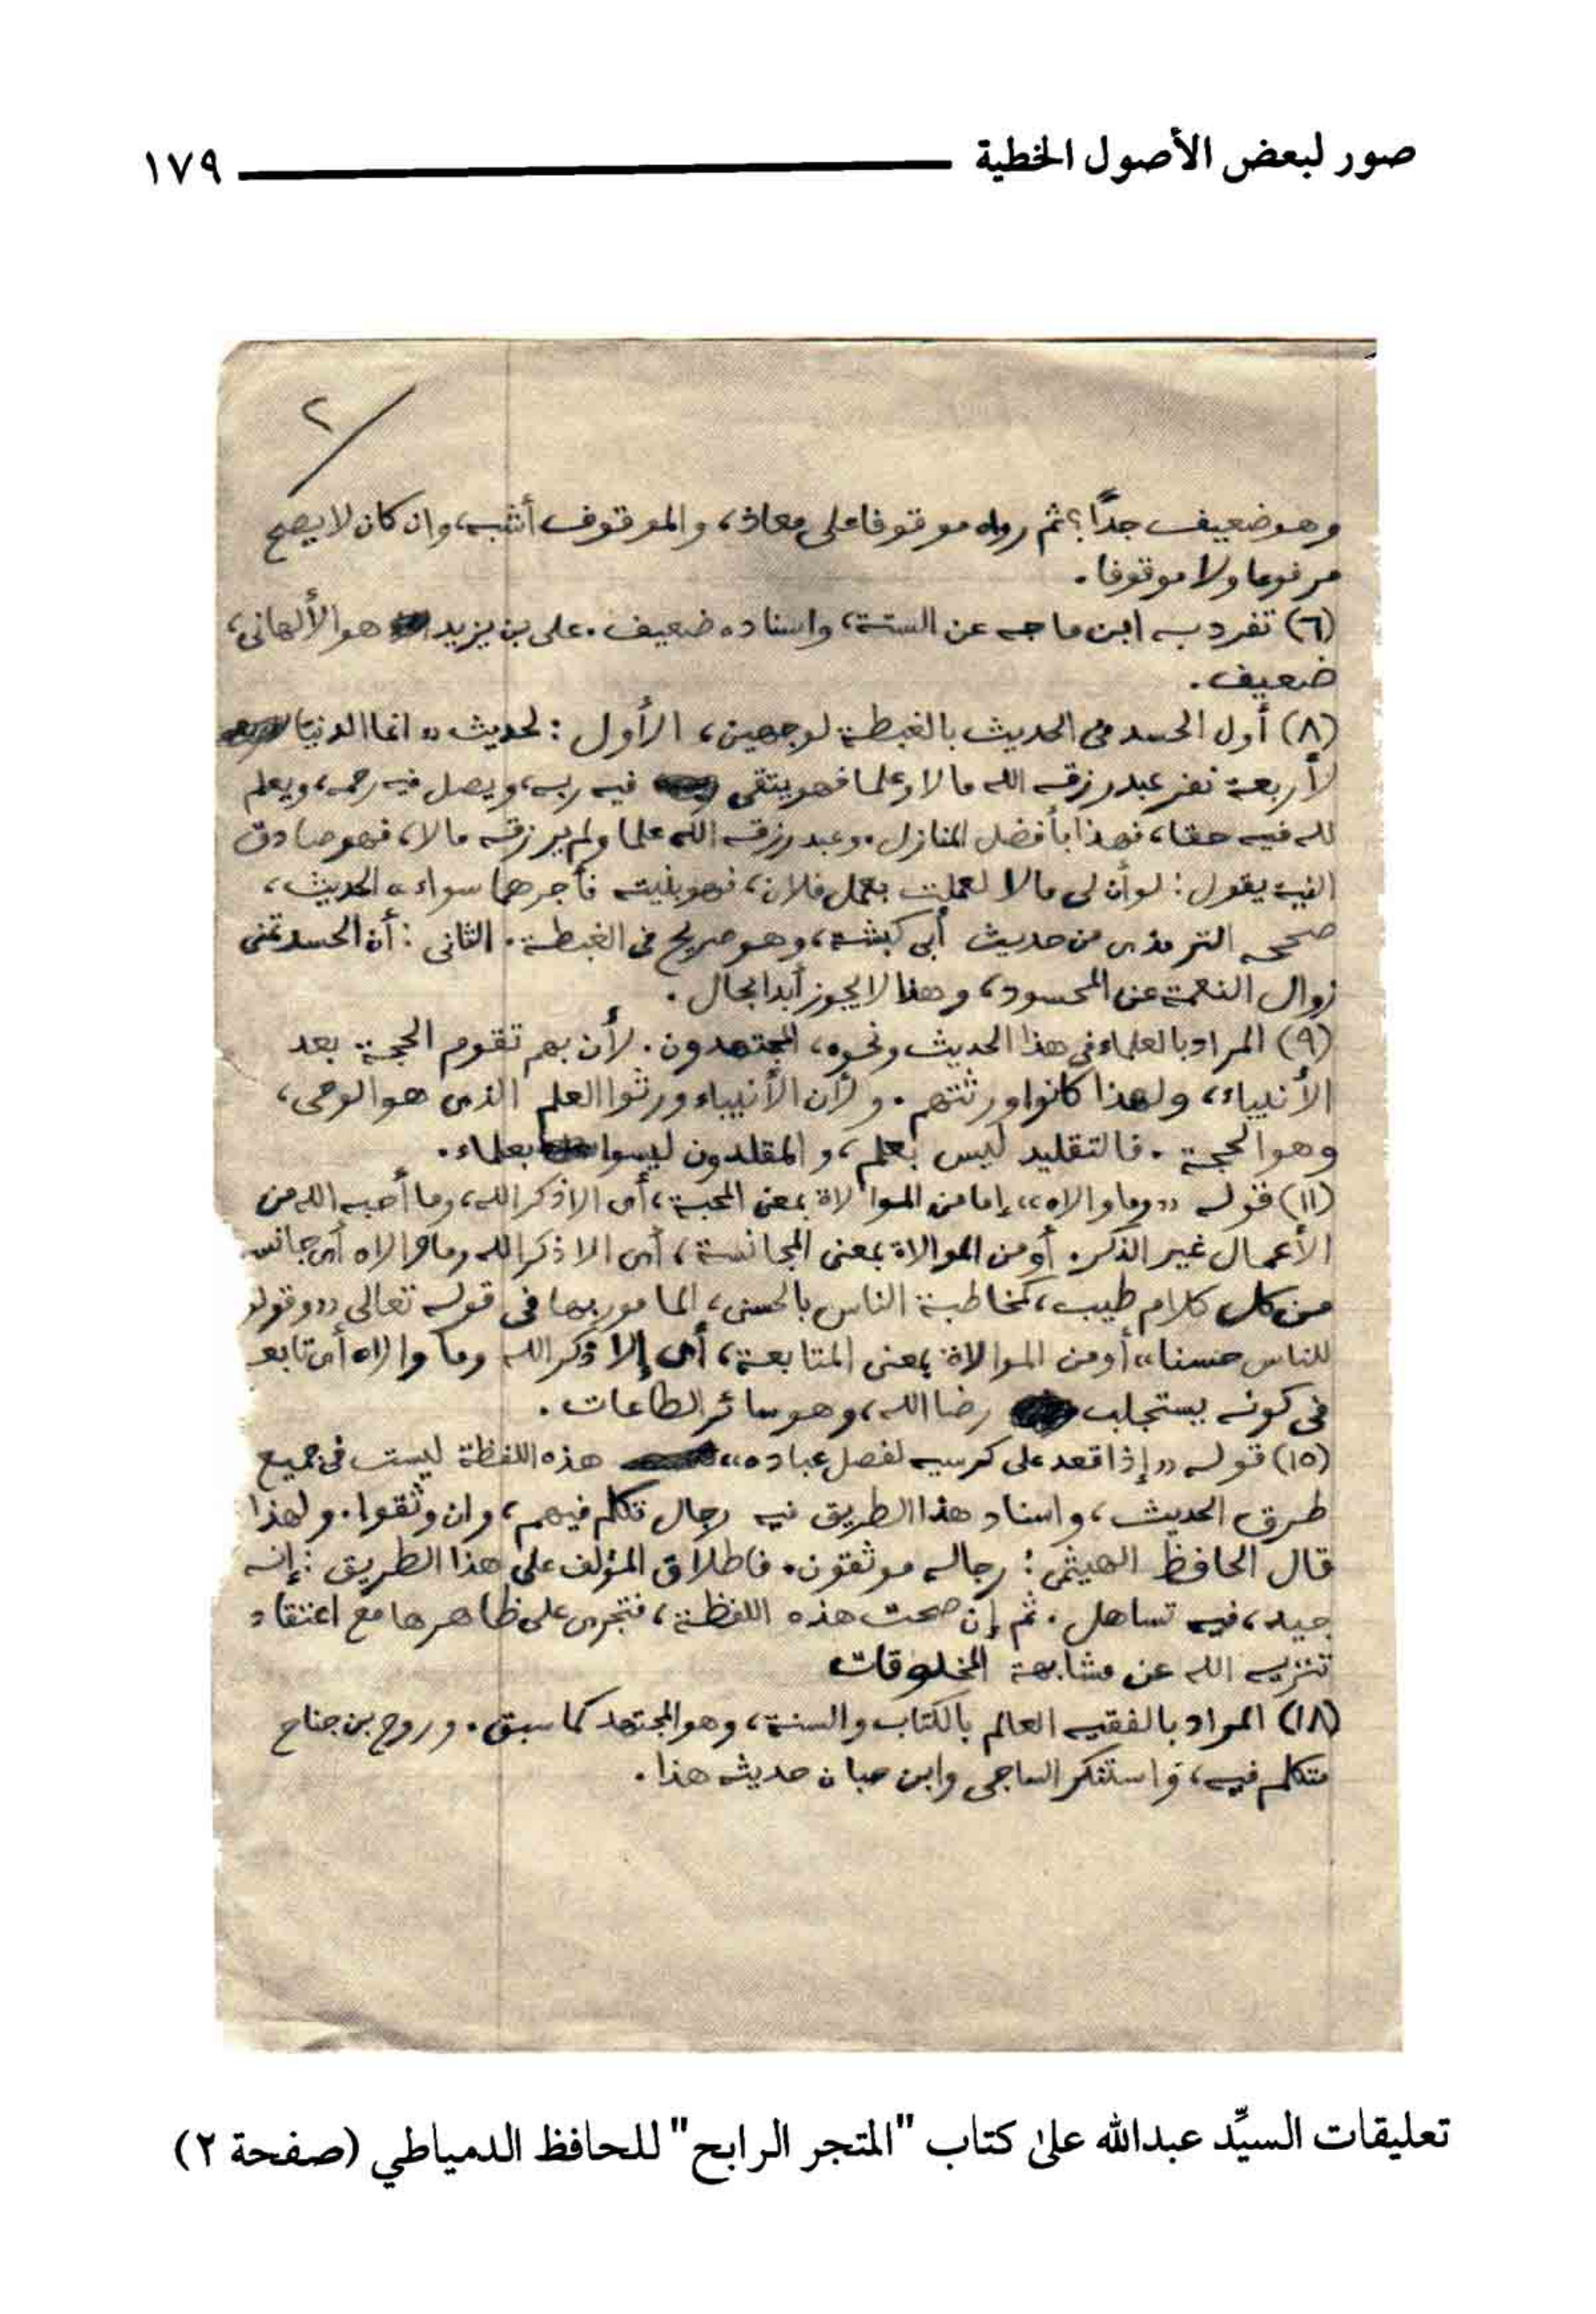 صور لبعض الأصول الخطية ١٧٩
٢
وهو ضعيف جدًّا؟ ثم رواه موقوفا على معاذ، والموقوف أشبه، وان كان لا يصح
مرفوعا ولا موقوفا.
(٦) تفرد به ابن ماجه عن الستة، واسناده ضعيف. على بن يزيد هو الألهانى،
ضعيف.
(٨) أول الحسد فى الحديث بالغبطة لوجهين، الأول: لحديث «انما الدنيا
لأربعة نفر عبد رزقه الله مالا وعلما فهو يتقى فيه ربه، ويصل فيه رحمه، ويعلم
لله فيه حقا، فهذا بأفضل المنازل. وعبد رزقه الله علما ولم يرزقه مالا، فهو صادق
النية يقول: لو أن لى مالا لعملت بعمل فلان، فهو بنيته فأجرهما سواء» الحديث،
صححه الترمذى من حديث أبى كبشة، وهو صريح فى الغبطة. الثانى: أن الحسد تمنى
زوال النعمة عن المحسود، وهذا لا يجوز أبدا بحال.
(٩) المراد بالعلماء فى هذا الحديث ونحوه، المجتهدون. لأن بهم تقوم الحجة بعد
الأنبياء، ولهذا كانوا ورثتهم. ولأن الأنبياء ورثوا العلم الذى هو الوحى،
وهو الحجة. فالتقليد ليس بعلم، والمقلدون ليسوا بعلماء.
(١١) قوله «وما والاه» إما من الموالاة بمعنى المحبة، أى الا ذكر الله، وما أحبه الله من
الأعمال غير الذكر. أو من الموالاة بمعنى المجانسة، أى الا ذكر الله وما والاه أى جانسه
من كل كلام طيب، كمخاطبة الناس بالحسنى، المامور بها فى قوله تعالى «وقولوا
للناس حسنا» أو من الموالاة بمعنى المتابعة، أى إلا ذكر الله وما والاه أى تابعه
فى كونه يستجلب رضا الله، وهو سائر الطاعات.
(١٥) قوله «إذا قعد على كرسيه لفصل عباده» هذه اللفظة ليست فى جميع
طرق الحديث، واسناد هذا الطريق فيه رجال تكلم فيهم، وان وثقوا. ولهذا
قال الحافظ الهيثمى: رجاله موثقون. فاطلاق المؤلف على هذا الطريق: إنه
جيد، فيه تساهل. ثم إن صحت هذه اللفظة، فتجرى على ظاهرها مع اعتقاد
تنزيه الله عن مشابهة المخلوقات
(١٨) المراد بالفقيه العالم بالكتاب والسنة، وهو المجتهد كما سبق. وروح بن جناح
متكلم فيه، واستنكر الساجى وابن حبان حديثه هذا.
تعليقات السيِّد عبدالله على كتاب "المتجر الرابح" للحافظ الدمياطي (صفحة ٢)